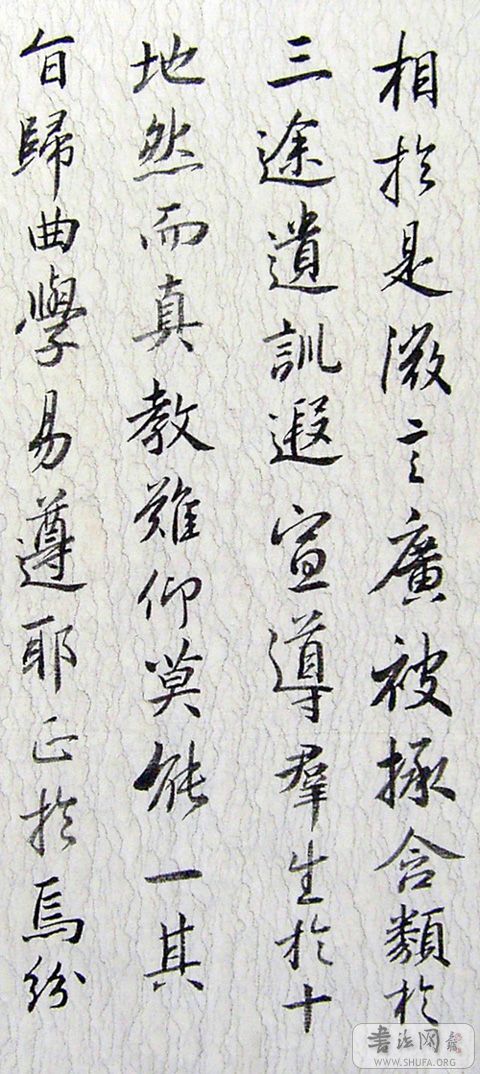 相於是微言廣被拯含類於
三途遺訓遐宣導群生於十
地然而真教難仰莫能一其
旨歸曲學易遵耶正於焉紛
书法网
WWW.SHUFA.ORG